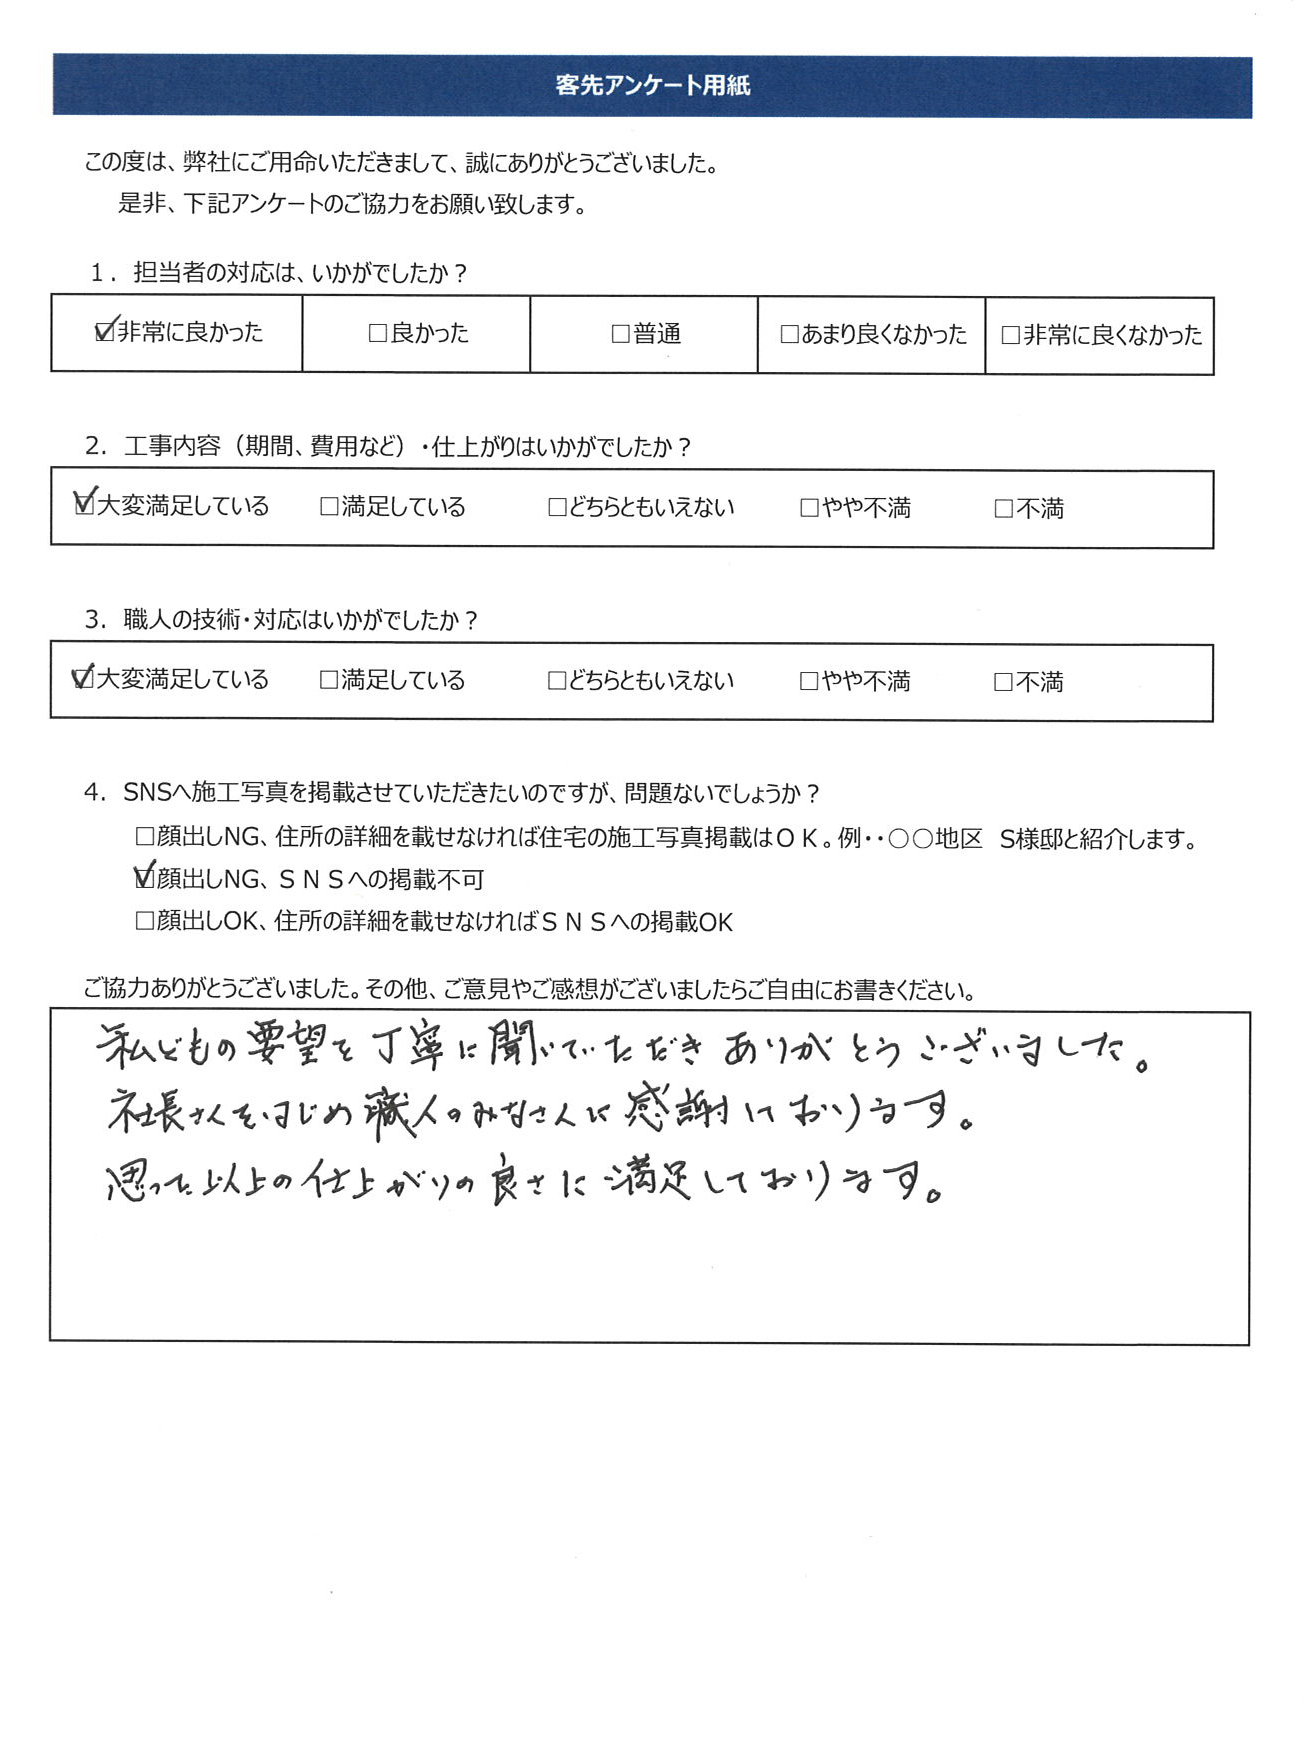 客先アンケート用紙
この度は、弊社にご用命いただきまして、誠にありがとうございました。
是非、下記アンケートのご協力をお願い致します。
1．担当者の対応は、いかがでしたか？
☑非常に良かった □良かった □普通 □あまり良くなかった □非常に良くなかった
2．工事内容（期間、費用など）・仕上がりはいかがでしたか？
☑大変満足している □満足している □どちらともいえない □やや不満 □不満
3．職人の技術・対応はいかがでしたか？
☑大変満足している □満足している □どちらともいえない □やや不満 □不満
4．SNSへ施工写真を掲載させていただきたいのですが、問題ないでしょうか？
□顔出しNG、住所の詳細を載せなければ住宅の施工写真掲載はＯＫ。例・・〇〇地区 S様邸と紹介します。
☑顔出しNG、ＳＮＳへの掲載不可
□顔出しOK、住所の詳細を載せなければＳＮＳへの掲載OK
ご協力ありがとうございました。その他、ご意見やご感想がございましたらご自由にお書きください。
私どもの要望を丁寧に聞いていただきありがとうございました。
社長さんをはじめ職人のみなさんに感謝しております。
思った以上の仕上がりの良さに満足しております。